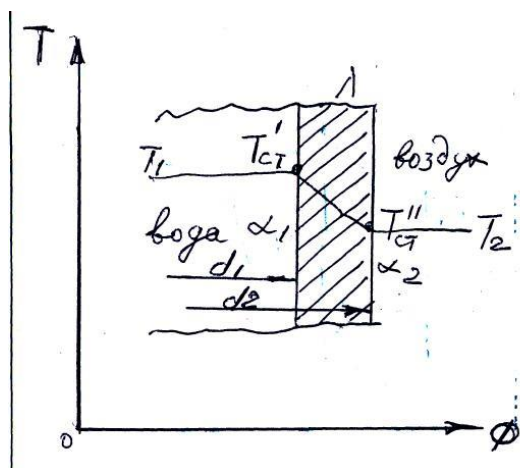 T
λ
T₁ T'ст воздух
вода α₁ T''ст T₂
α₂
d₁
d2
0 Φ